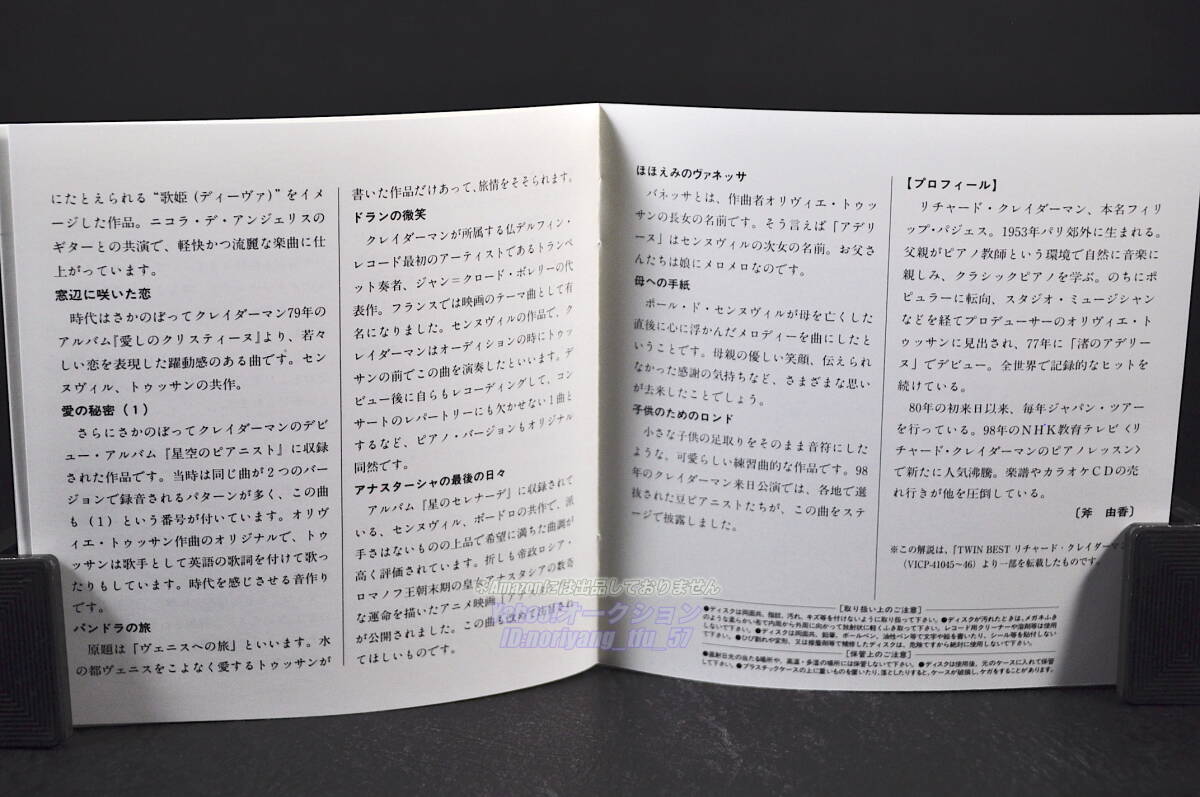 にたとえられる“歌姫（ディーヴァ）”をイメ
ージした作品。ニコラ・デ・アンジェリスの
ギターとの共演で、軽快かつ流麗な楽曲に仕
上がっています。
窓辺に咲いた恋
時代はさかのぼってクレイダーマン79年の
アルバム『愛しのクリスティーヌ』より、若々
しい恋を表現した躍動感のある曲です。セン
ヌヴィル、トゥッサンの共作。
愛の秘密（1）
さらにさかのぼってクレイダーマンのデビ
ュー・アルバム『星空のピアニスト』に収録
された作品です。当時は同じ曲が２つのバー
ジョンで録音されるパターンが多く、この曲
も（1）という番号が付いています。オリヴ
ィエ・トゥッサン作曲のオリジナルで、トゥ
ッサンは歌手として英語の歌詞を付けて歌っ
たりもしています。時代を感じさせる音作り
です。
パンドラの旅
原題は「ヴェニスへの旅」といいます。水
の都ヴェニスをこよなく愛するトゥッサンが
書いた作品だけあって、旅情をそそられます。
ドランの微笑
クレイダーマンが所属する仏デルフィン・
レコード最初のアーティストであるトランペ
ット奏者、ジャン＝クロード・ボレリーの代
表作。フランスでは映画のテーマ曲として有
名になりました。センヌヴィルの作品で、ク
レイダーマンはオーディションの時にトゥッ
サンの前でこの曲を演奏したといいます。デ
ビュー後に自らもレコーディングして、コン
サートのレパートリーにも欠かせない１曲と
するなど、ピアノ・バージョンもオリジナル
同然です。
アナスターシャの最後の日々
アルバム『星のセレナーデ』に収録されて
いる、センヌヴィル、ボードロの共作で、派
手さはないものの上品で希望に満ちた曲調が
高く評価されています。折しも帝政ロシア・
ロマノフ王朝末期の皇女アナスタシアの数奇
な運命を描いたアニメ映画
が公開されました。この曲も改めて注目され
てほしいものです。
ほほえみのヴァネッサ
バネッサとは、作曲者オリヴィエ・トゥッ
サンの長女の名前です。そう言えば「アデリ
ーヌ」はセンヌヴィルの次女の名前。お父さ
んたちは娘にメロメロなのです。
母への手紙
ポール・ド・センヌヴィルが母を亡くした
直後に心に浮かんだメロディーを曲にしたと
いうことです。母親の優しい笑顔、伝えられ
なかった感謝の気持ちなど、さまざまな思い
が去来したことでしょう。
子供のためのロンド
小さな子供の足取りをそのまま音符にした
ような、可愛らしい練習曲的な作品です。98
年のクレイダーマン来日公演では、各地で選
抜された豆ピアニストたちが、この曲をステ
ージで披露しました。
【プロフィール】
リチャード・クレイダーマン、本名フィリ
ップ・パジェス。1953年パリ郊外に生まれる。
父親がピアノ教師という環境で自然に音楽に
親しみ、クラシックピアノを学ぶ。のちにポ
ピュラーに転向、スタジオ・ミュージシャン
などを経てプロデューサーのオリヴィエ・ト
ゥッサンに見出され、77年に「渚のアデリー
ヌ」でデビュー。全世界で記録的なヒットを
続けている。
80年の初来日以来、毎年ジャパン・ツアー
を行っている。98年のNHK教育テレビ〈リ
チャード・クレイダーマンのピアノレッスン〉
で新たに人気沸騰。楽譜やカラオケCDの売
れ行きが他を圧倒している。
〔斧　由香〕
※この解説は、『TWIN BEST リチャード・クレイダーマン
(VICP-41045〜46) より一部を転載したものです。
[取り扱い上のご注意]
●ディスクは両面共、指紋、汚れ、キズ等を付けないように取り扱って下さい。●ディスクが汚れたときは、メガネふき
のような柔らかい布で内周から外周に向かって放射状に軽くふき取って下さい。レコード用クリーナーや溶剤等は使用
しないで下さい。●ディスクは両面共、鉛筆、ボールペン、油性ペン等で文字や絵を書いたり、シール等を貼付しない
で下さい。●ひび割れや変形、又は接着剤等で補修したディスクは、危険ですから絶対に使用しないで下さい。
[保管上のご注意]
●直射日光の当たる場所や、高温・多湿の場所には保管しないで下さい。●ディスクは使用後、元のケースに入れて保管
して下さい。●プラスチックケースの上に重いものを置いたり、落としたりすると、ケースが破損し、ケガをすることがあります。
※Amazonには出品しておりません
Yahoo!オークション
ID:noriyang_tfu_57